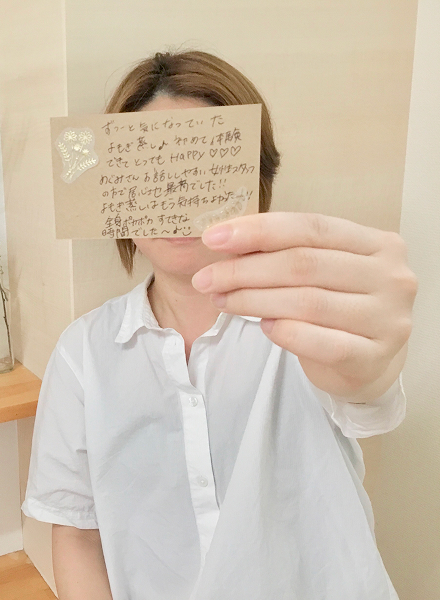 ずーっと気になっていた
よもぎ蒸し♪初めて体験
できてとってもHappy♡♡♡
めぐみさんお話ししやすい女性スタッフ
の方で居心地最高でした!!
よもぎ蒸しはもう気持ちよかった〜!!
全身ポカポカすてきな
時間でした〜♪